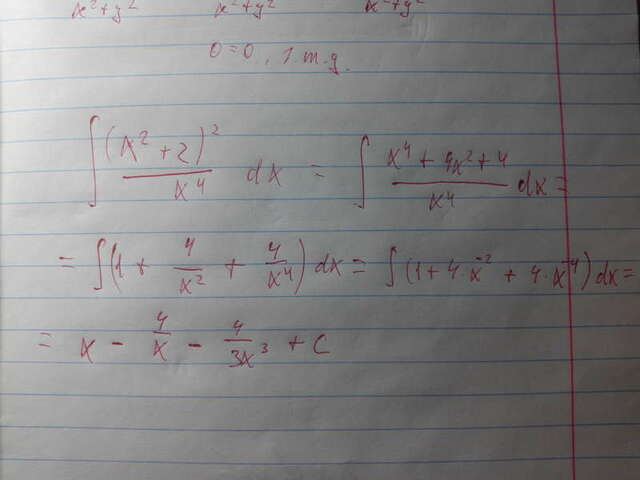 x²+y² x²+y² x²+y²
0=0,
∫ (x² + 2)² / x⁴ dx = ∫ (x⁴ + 4x² + 4) / x⁴ dx =
= ∫ (1 + 4/x² + 4/x⁴) dx = ∫ (1 + 4·x⁻² + 4·x⁻⁴) dx =
= x - 4/x - 4/3x³ + C